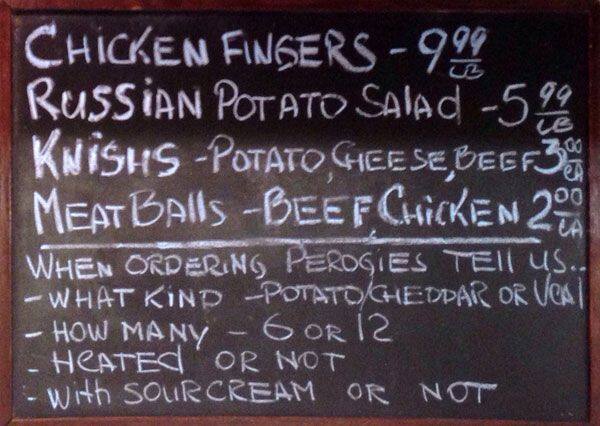 CHICKEN FINGERS - 9 99 LB
RUSSIAN POTATO Salad - 5 99 LB
KNISHS - POTATO, CHEESE, BEEF 3 00 EA
MEAT BAlls - BEEF, CHICKEN 2 00 EA
WHEN ORDERING PEROGIES TELL US..
- WHAT KIND - POTATO/CHEDDAR OR VEAl
- HOW MANY - 6 OR 12
- HEATED OR NOT
- With SOUR CREAM OR NOT